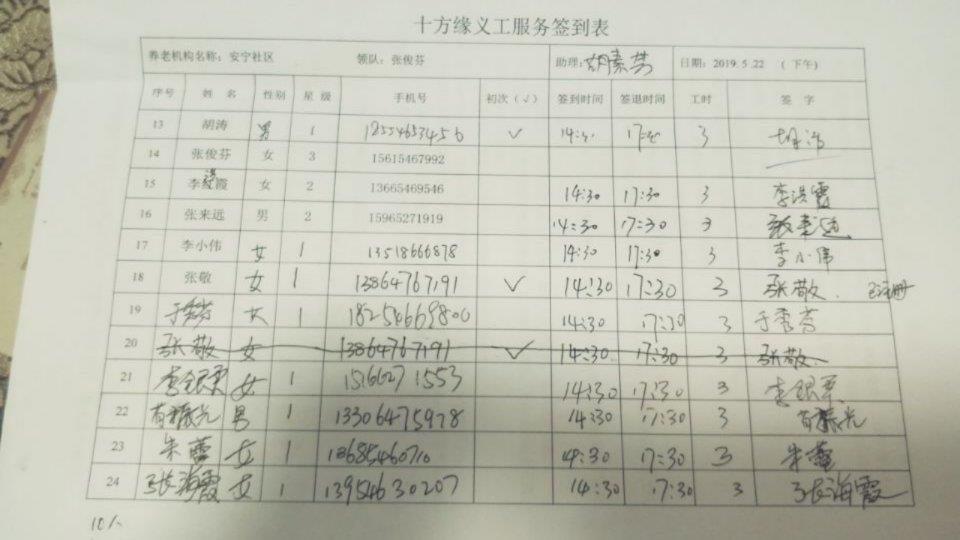 十方缘义工服务签到表
养老机构名称：安宁社区 领队：张俊芬 助理：胡素芬 日期：2019.5.22 （下午）
序号 姓名 性别 星级 手机号 初次（√） 签到时间 签退时间 工时 签字
13 胡涛 男 1 18554653456 √ 14:30 17:30 3 胡涛
14 张俊芬 女 3 15615467992
15 李洪霞 女 2 13665469546 14:30 17:30 3 李洪霞
16 张来远 男 2 15965271919 14:30 17:30 3 张来远
17 李小伟 女 1 13518666878 14:30 17:30 3 李小伟
18 张敬 女 1 13864767191 √ 14:30 17:30 3 张敬 已注册
19 于秀芬 女 1 18254669800 14:30 17:30 3 于秀芬
20 张敬 女 13864767191 √ 14:30 17:30 3 张敬
21 李银翠 女 1 15166271553 14:30 17:30 3 李银翠
22 男 1 13306475978 14:30 17:30 3
23 朱蕾 女 1 13685460710 14:30 17:30 3 朱蕾
24 张海霞 女 1 13954630207 14:30 17:30 3 张海霞
10人